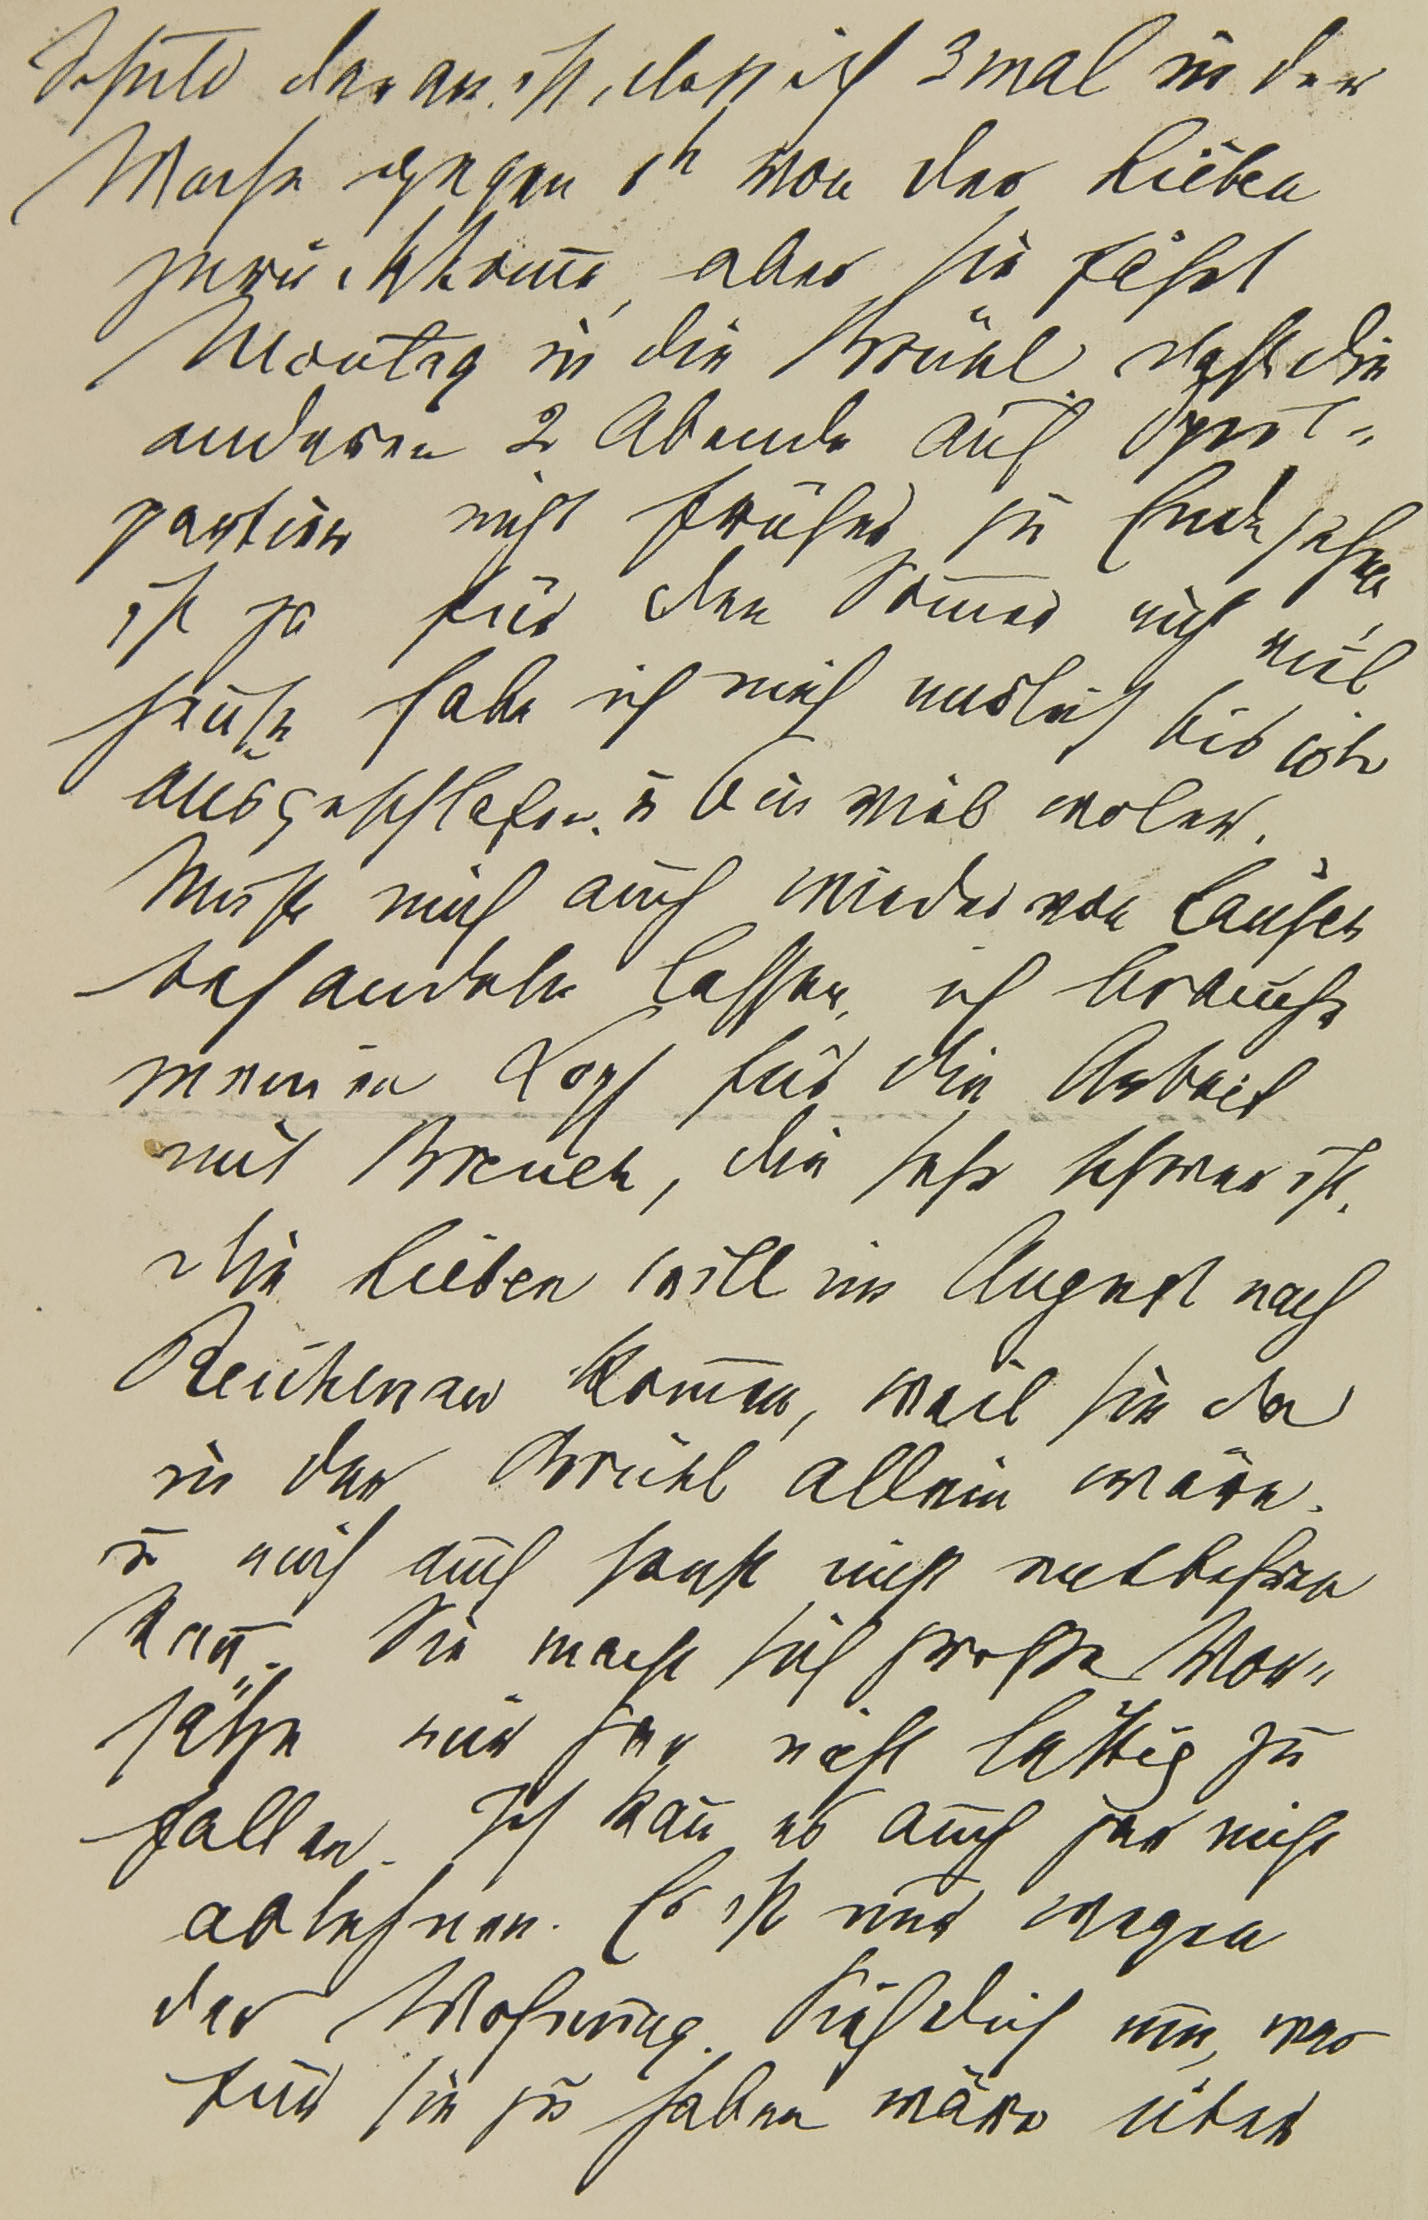 Schuld daran ist, daß ich 3mal in der
Woche gegen 1h von der Lieben
zurückkome, aber sie fährt
Montag in die Brühl, daß die
anderen 2 Abende auch
partien nicht früher zu Ende gehen,
ist ja für den Somer nicht viel
heute habe ich mich endlich bis 10h
ausgeschlafen. u bin viel woler.
Muß mich auch wieder von
behandeln lassen, ich brauche
meinen Kopf für die Arbeit
mit Breuer, die sehr schwer ist.
Die Lieben will im August nach
Reichenau komen, weil sie da
in der Brühl allein wäre.
u mich auch sonst nicht entbehren
kan. Sie macht sich große Vor-
sätze mir gar nicht lästig zu
fallen. Ich kan es auch gar nicht
ablehnen. Es ist nur wegen
der Wohnung. Sieh dich um, was
für sie zu haben wäre über